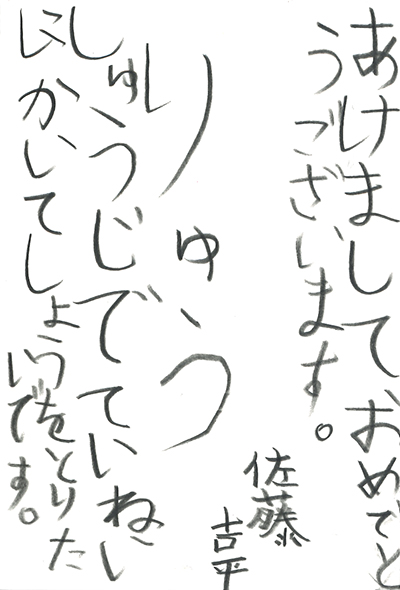 あけましておめでと
うございます。
佐藤
吉平
りゅう
しゅうじでていねい
にかいてしょうをとりた
いです。